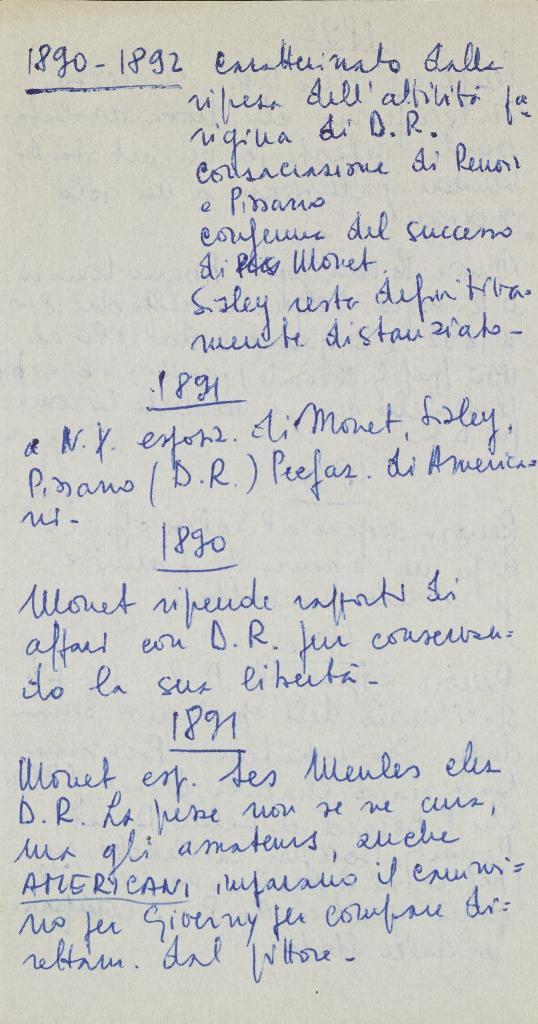 1890-1892 caratterizzato dalla
ripresa dell'attività pa=
rigina di D.R.
consacrazione di Renoir
e Pissarro
conferma del successo
di Monet.
Sisley resta definitiva=
mente distanziato-
1891
a N.Y. esposiz. di Monet, Sisley,
Pissarro (D.R.) Prefaz. di America=
ni-
1890
Monet riprende rapporti di
affari con D.R. pur conservan=
do la sua libertà-
1891
Monet esp. Les Meules chez
D.R. La presse non se ne cura,
ma gli amateurs, anche
AMERICANI, imparano il cammi=
no per Giverny per comprare di=
rettam. dal pittore-